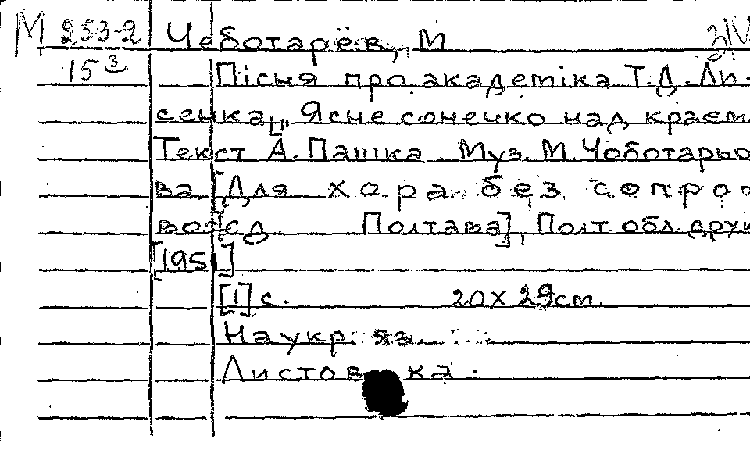 М 253-2 Чеботарёв, М
15 3 Пісня про академіка Т.Д. Ли-
сенка „Ясне сонечко над краєм
Текст А. Пашка Муз. М. Чоботарьо
ва [Для хора без сопро
Полтава], Полт обл. друк
[195
[1] с. 20 х 29 cm.
На укр. яз.
Листовка.